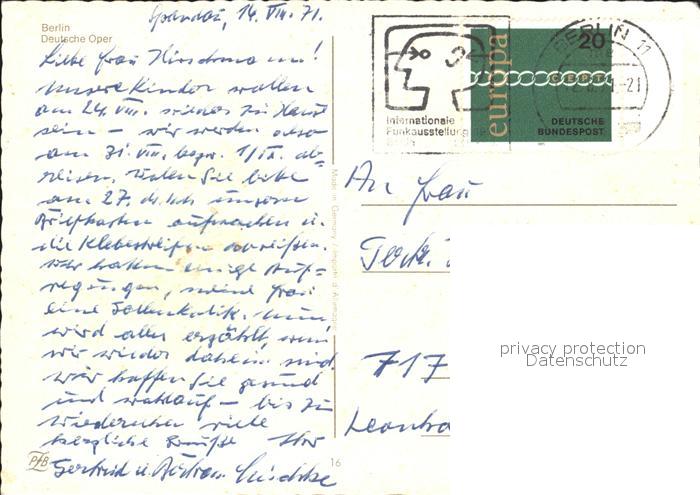 Berlin
Deutsche Oper
Spandau, 14. VIII. 71.
Liebe Frau Hirschmann!
Unsere Kinder wollen
am 24. VIII. wieder zu Haus
sein – wir werden also
am 31. VIII. bezw. 1/IX. ab=
reisen. Wollen Sie bitte
am 27. d. Mts unseren
Briefkasten aufmachen u.
die Klebestreifen abreißen.
Wir hatten einige Auf=
regungen, meine Frau
eine Gallenkolik. Nun
wird alles erzählt, wenn
wir wieder daheim sind.
Wir hoffen Sie gesund
und wohlauf – bis zum
Wiedersehen viele
herzliche Grüße Ihre
Gertrud u.
PfB
16
Made in Germany
Internationale
Funkausstellung
europa
20
CEPT
DEUTSCHE
BUNDESPOST
BERLIN 11
-21
An Frau
717
Leonba
privacy protection
Datenschutz